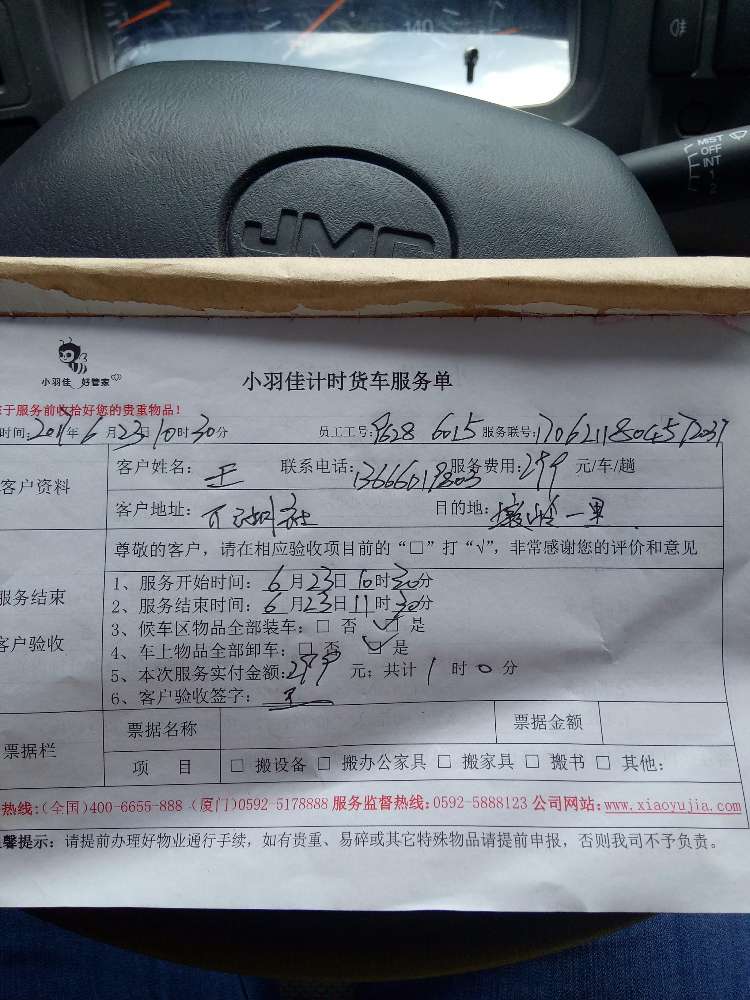 140
MIST
OFF
INT
1
2
JMC
小羽佳 好管家
小羽佳计时货车服务单
于服务前收拾好您的贵重物品！
时间:2017年6月23日10时30分 员工工号:9628 6015 服务联号:
客户资料
客户姓名: 王 联系电话:13666019803 服务费用:299元/车/趟
客户地址: 目的地: 一里
尊敬的客户，请在相应验收项目前的“□”打“√”，非常感谢您的评价和意见
服务结束
客户验收
1、服务开始时间: 6月23日10时30分
2、服务结束时间: 6月23日11时30分
3、候车区物品全部装车: □ 否 ☑ 是
4、车上物品全部卸车: □ 否 ☑ 是
5、本次服务实付金额:299元; 共计 1 时 0 分
6、客户验收签字: 王
票据栏
票据名称 票据金额
项 目 □ 搬设备 □ 搬办公家具 □ 搬家具 □ 搬书 □ 其他:
热线:(全国)400-6655-888 (厦门)0592-5178888 服务监督热线:0592-5888123 公司网站:www.xiaoyujia.com
馨提示: 请提前办理好物业通行手续，如有贵重、易碎或其它特殊物品请提前申报，否则我司不予负责。